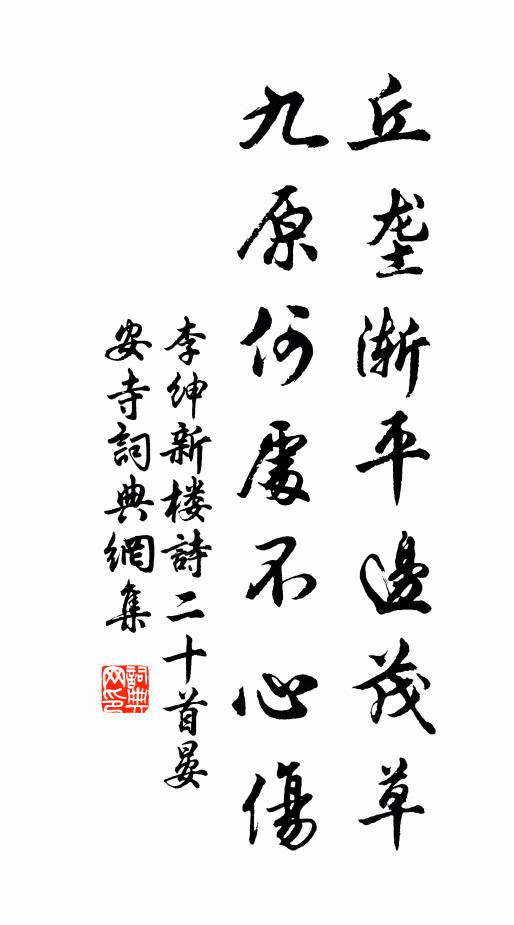 丘垄渐平邊茂草
九原何處不心傷
李紳新楼詩二十首晏
安寺詞典網集
詞典
网印